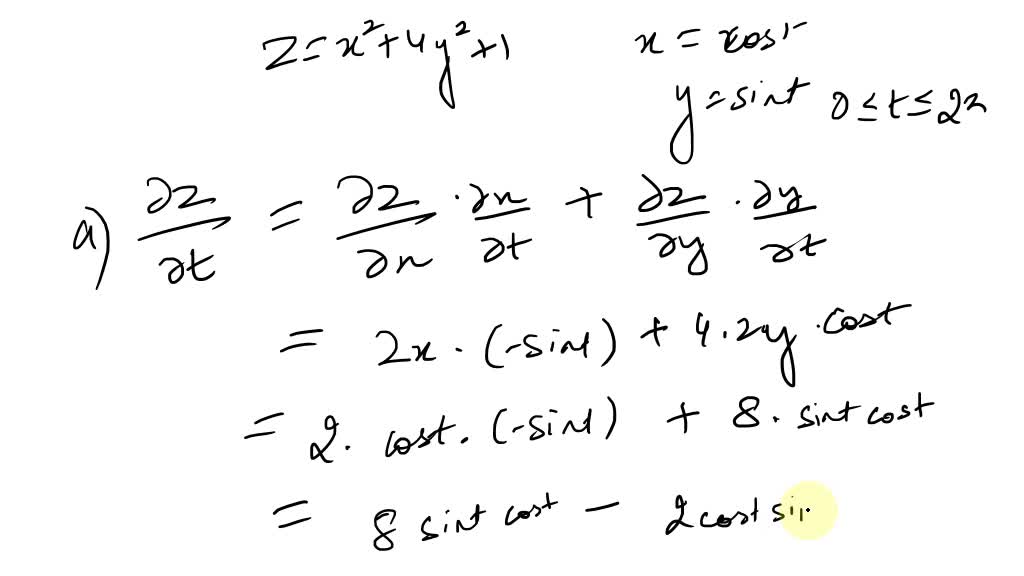 z = x² + 4y² + 1    x = cost
y = sint  0 ≤ t ≤ 2π
a) ∂z/∂t = ∂z/∂x · ∂x/∂t + ∂z/∂y · ∂y/∂t
= 2x · (-sint) + 4.2y · cost
= 2. cost. (-sint) + 8. sint cost
= 8 sint cost - 2 cost si